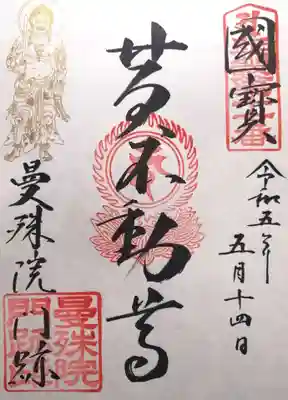 國寶
令和五年
五月十四日
黄不動尊
曼殊院門跡
曼殊院